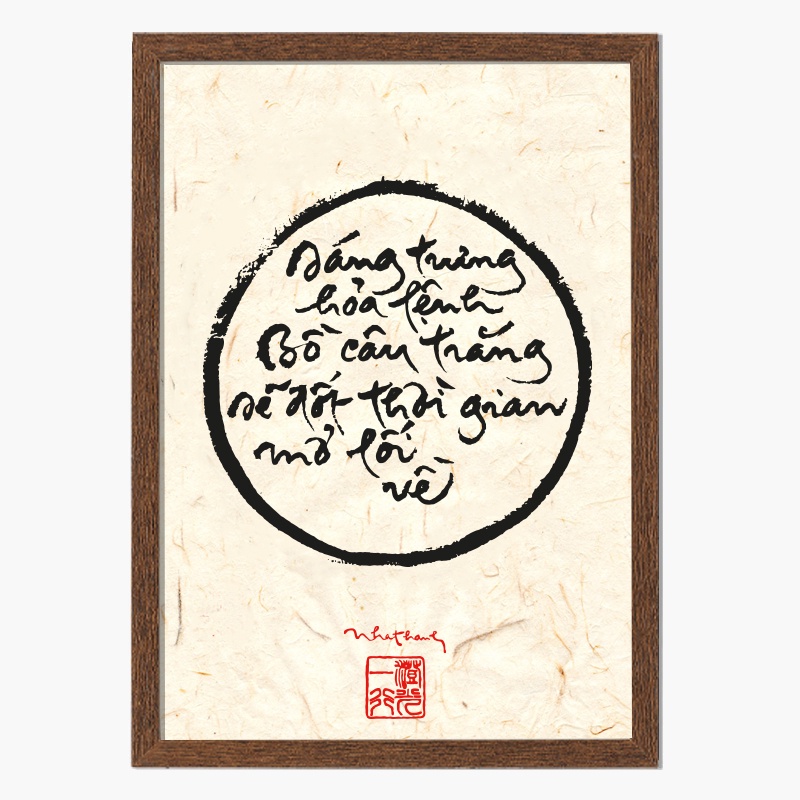 Dáng trưng
hỏa lệnh
Bồ câu trắng
sẽ đốt thời gian
mở lối
về
Nhathanh
一行
澄光